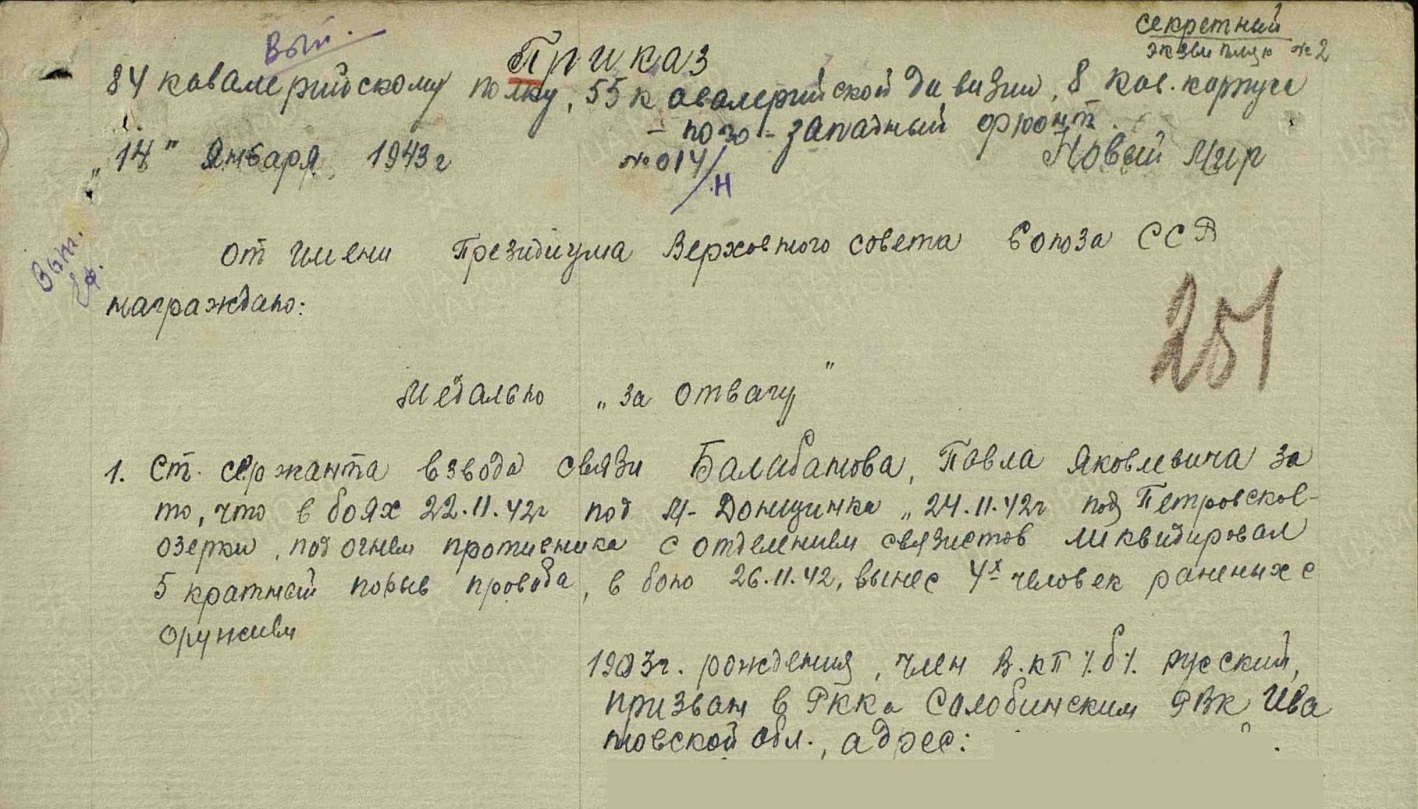 секретный
экземпляр № 2
Вып.
Приказ
84 кавалерийскому полку, 55 кавалерийской дивизии, 8 кав. корпуса
- юго-западный фронт.
"14" Января, 1943 г № 014/н Новый Мир
Вып.
от имени Президиума Верховного совета Союза ССР
награждаю:
251
Медалью „за отвагу"
1. Ст. сержанта взвода связи Балабанова, Павла Яковлевича за
то, что в боях 22.11.42г под М-Донщинка „24.11.42г под Петровское-
озерки, под огнем противника с отделением связистов ликвидировал
5 кратный порыв провода, в бою 26.11.42, вынес 4х человек раненых с
оружием
1903г. рождения, член В.КП%б% русский,
призван в РККа Солобинским РВК Ива
новской обл., адрес: